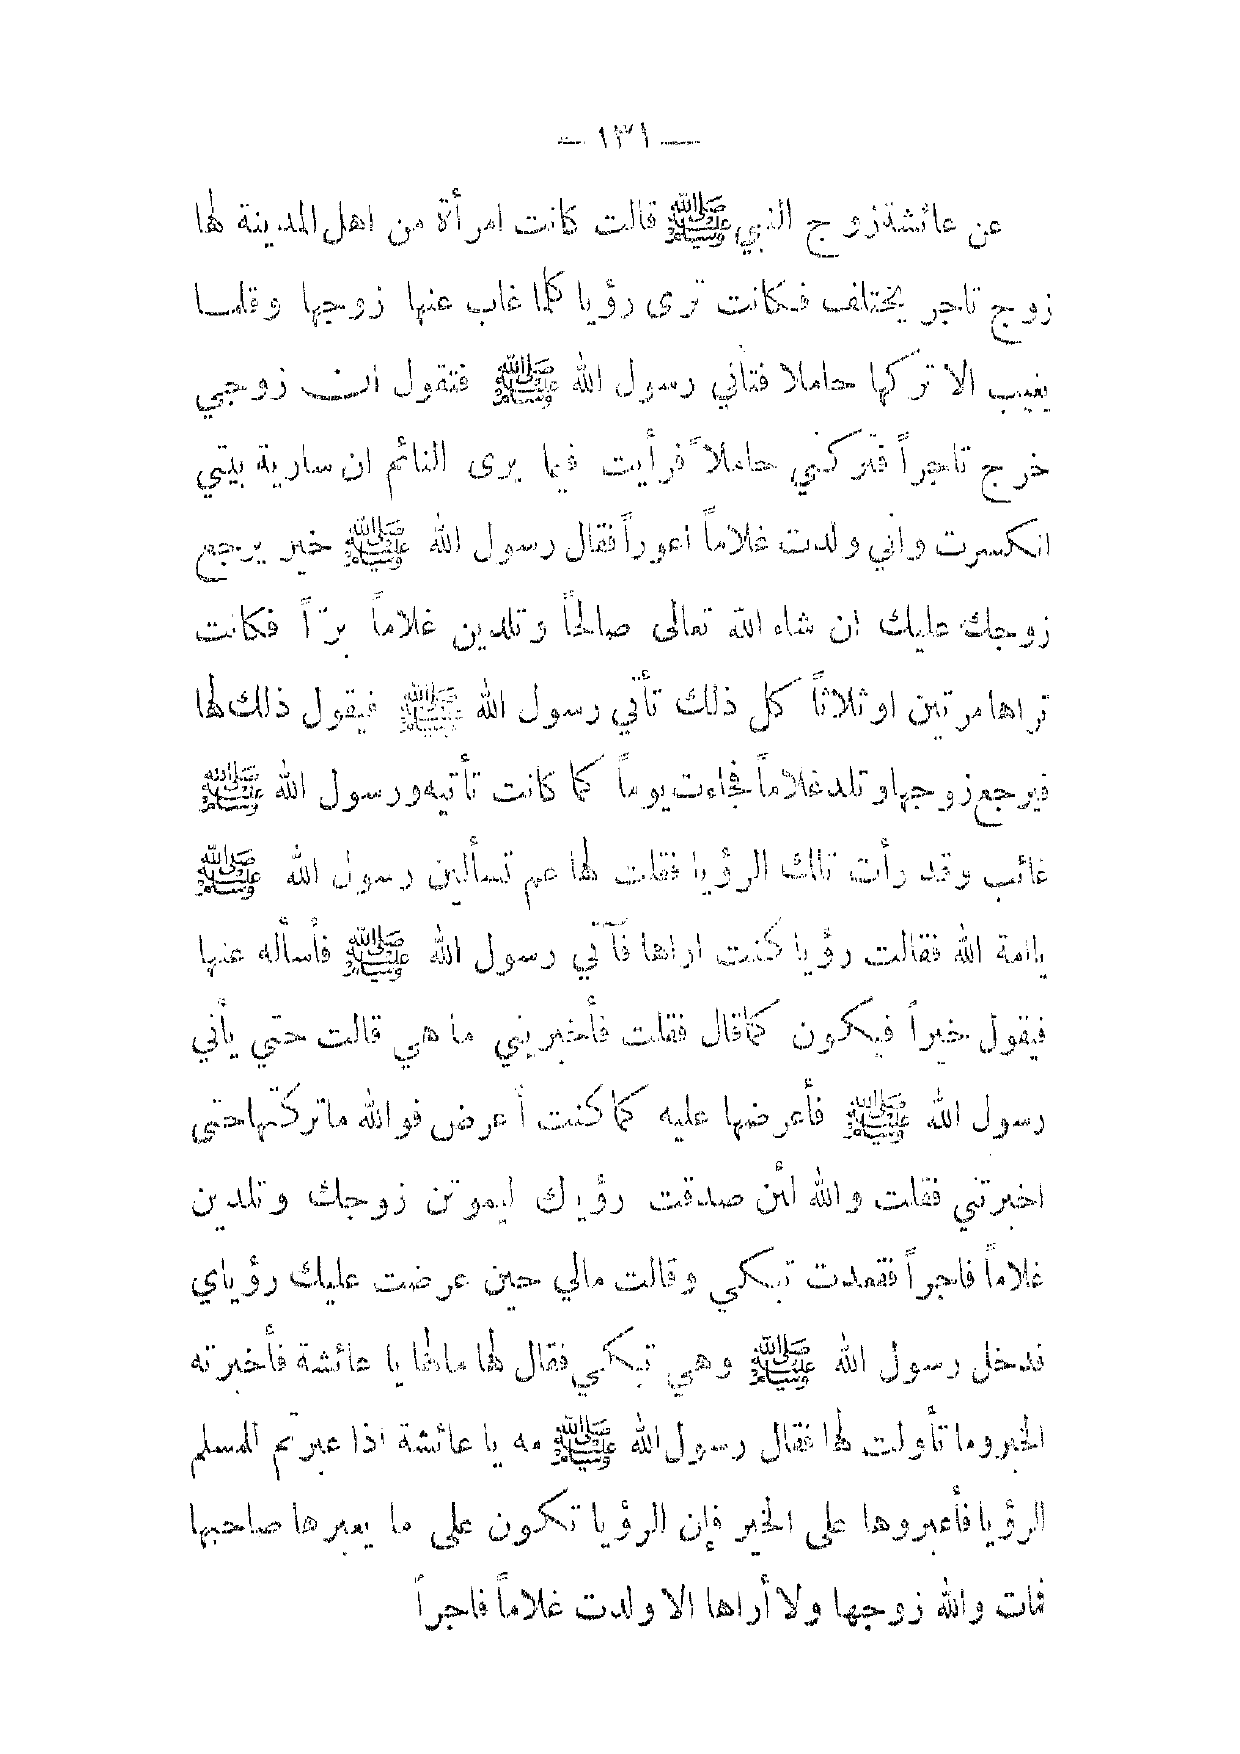 — ١٣١ —
عن عائشة زوج النبي ﷺ قالت كانت امرأة من اهل المدينة لها
زوج تاجر يختلف فكانت ترى رؤيا كلما غاب عنها زوجها وقلما
يغيب الا تركها حاملا فتأتي رسول الله ﷺ فتقول ان زوجي
خرج تاجراً فتركني حاملاً فرأيت فيما يرى النائم ان سارية بيتي
انكسرت واني ولدت غلاماً اعوراً فقال رسول الله ﷺ خير يرجع
زوجك عليك ان شاء الله تعالى صالحاً وتلدين غلاماً برّاً فكانت
تراها مرتين او ثلاثاً كل ذلك تأتي رسول الله ﷺ فيقول ذلك لها
فيرجع زوجها وتلد غلاماً فجاءت يوماً كما كانت تأتيه ورسول الله ﷺ
غائب وقد رأت تلك الرؤيا فقلت لها عم تسألين رسول الله ﷺ
ياامة الله فقالت رؤيا كنت اراها فآتي رسول الله ﷺ فأسأله عنها
فيقول خيراً فيكون كما قال فقلت فأخبريني ما هي قالت حتى يأتي
رسول الله ﷺ فأعرضها عليه كما كنت أعرض فوالله ماتركتها حتى
اخبرتني فقلت والله لئن صدقت رؤياك ليموتن زوجك وتلدين
غلاماً فاجراً فقعدت تبكي وقالت مالي حين عرضت عليك رؤياي
فدخل رسول الله ﷺ وهي تبكي فقال لها مالها يا عائشة فأخبرته
الخبر وما تأولت لها فقال رسول الله ﷺ مه يا عائشة اذا عبرتم للمسلم
الرؤيا فأعبروها على الخير فإن الرؤيا تكون على ما يعبرها صاحبها
فمات والله زوجها ولا أراها الا ولدت غلاماً فاجراً